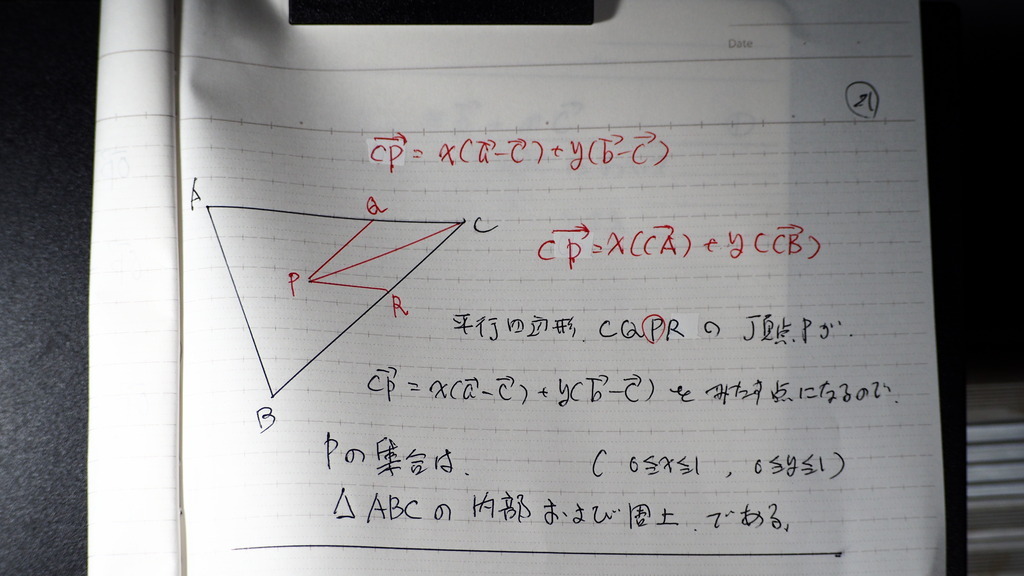 Date
21
CP = x(a-c)+y(b-c)
A
Q
C
CP=x(CA)+y(CB)
P
R
平行四辺形 CQPRの 頂点Pが.
CP = x(a-c)+y(b-c) を みたす点になるので.
B
Pの集合は. ( 0≦x≦1 , 0≦y≦1 )
△ABCの 内部 および 周上. である.